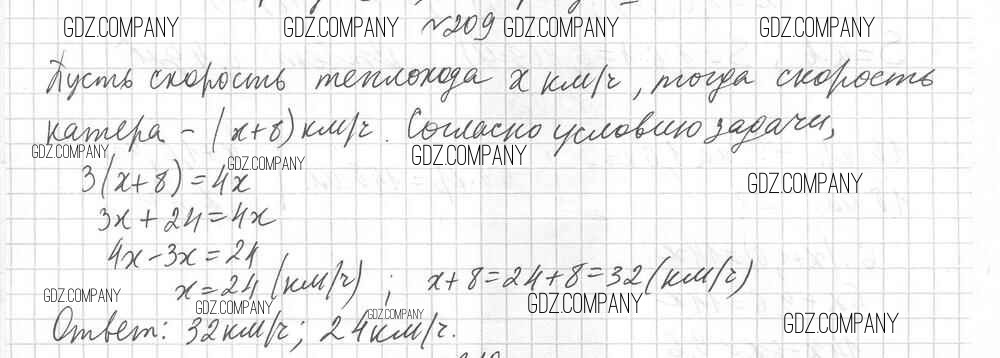 GDZ.COMPANY GDZ.COMPANY №209 GDZ.COMPANY GDZ.COMPANY
Пусть скорость теплохода x км/ч, тогда скорость
катера - (x+8) км/ч. Согласно условию задачи,
GDZ.COMPANY GDZ.COMPANY GDZ.COMPANY
3(x+8)=4x
GDZ.COMPANY
3x+24=4x
4x-3x=24
x=24 (км/ч) ; x+8=24+8=32 (км/ч)
GDZ.COMPANY GDZ.COMPANY GDZ.COMPANY GDZ.COMPANY
Ответ: 32 км/ч; 24 км/ч.
GDZ.COMPANY